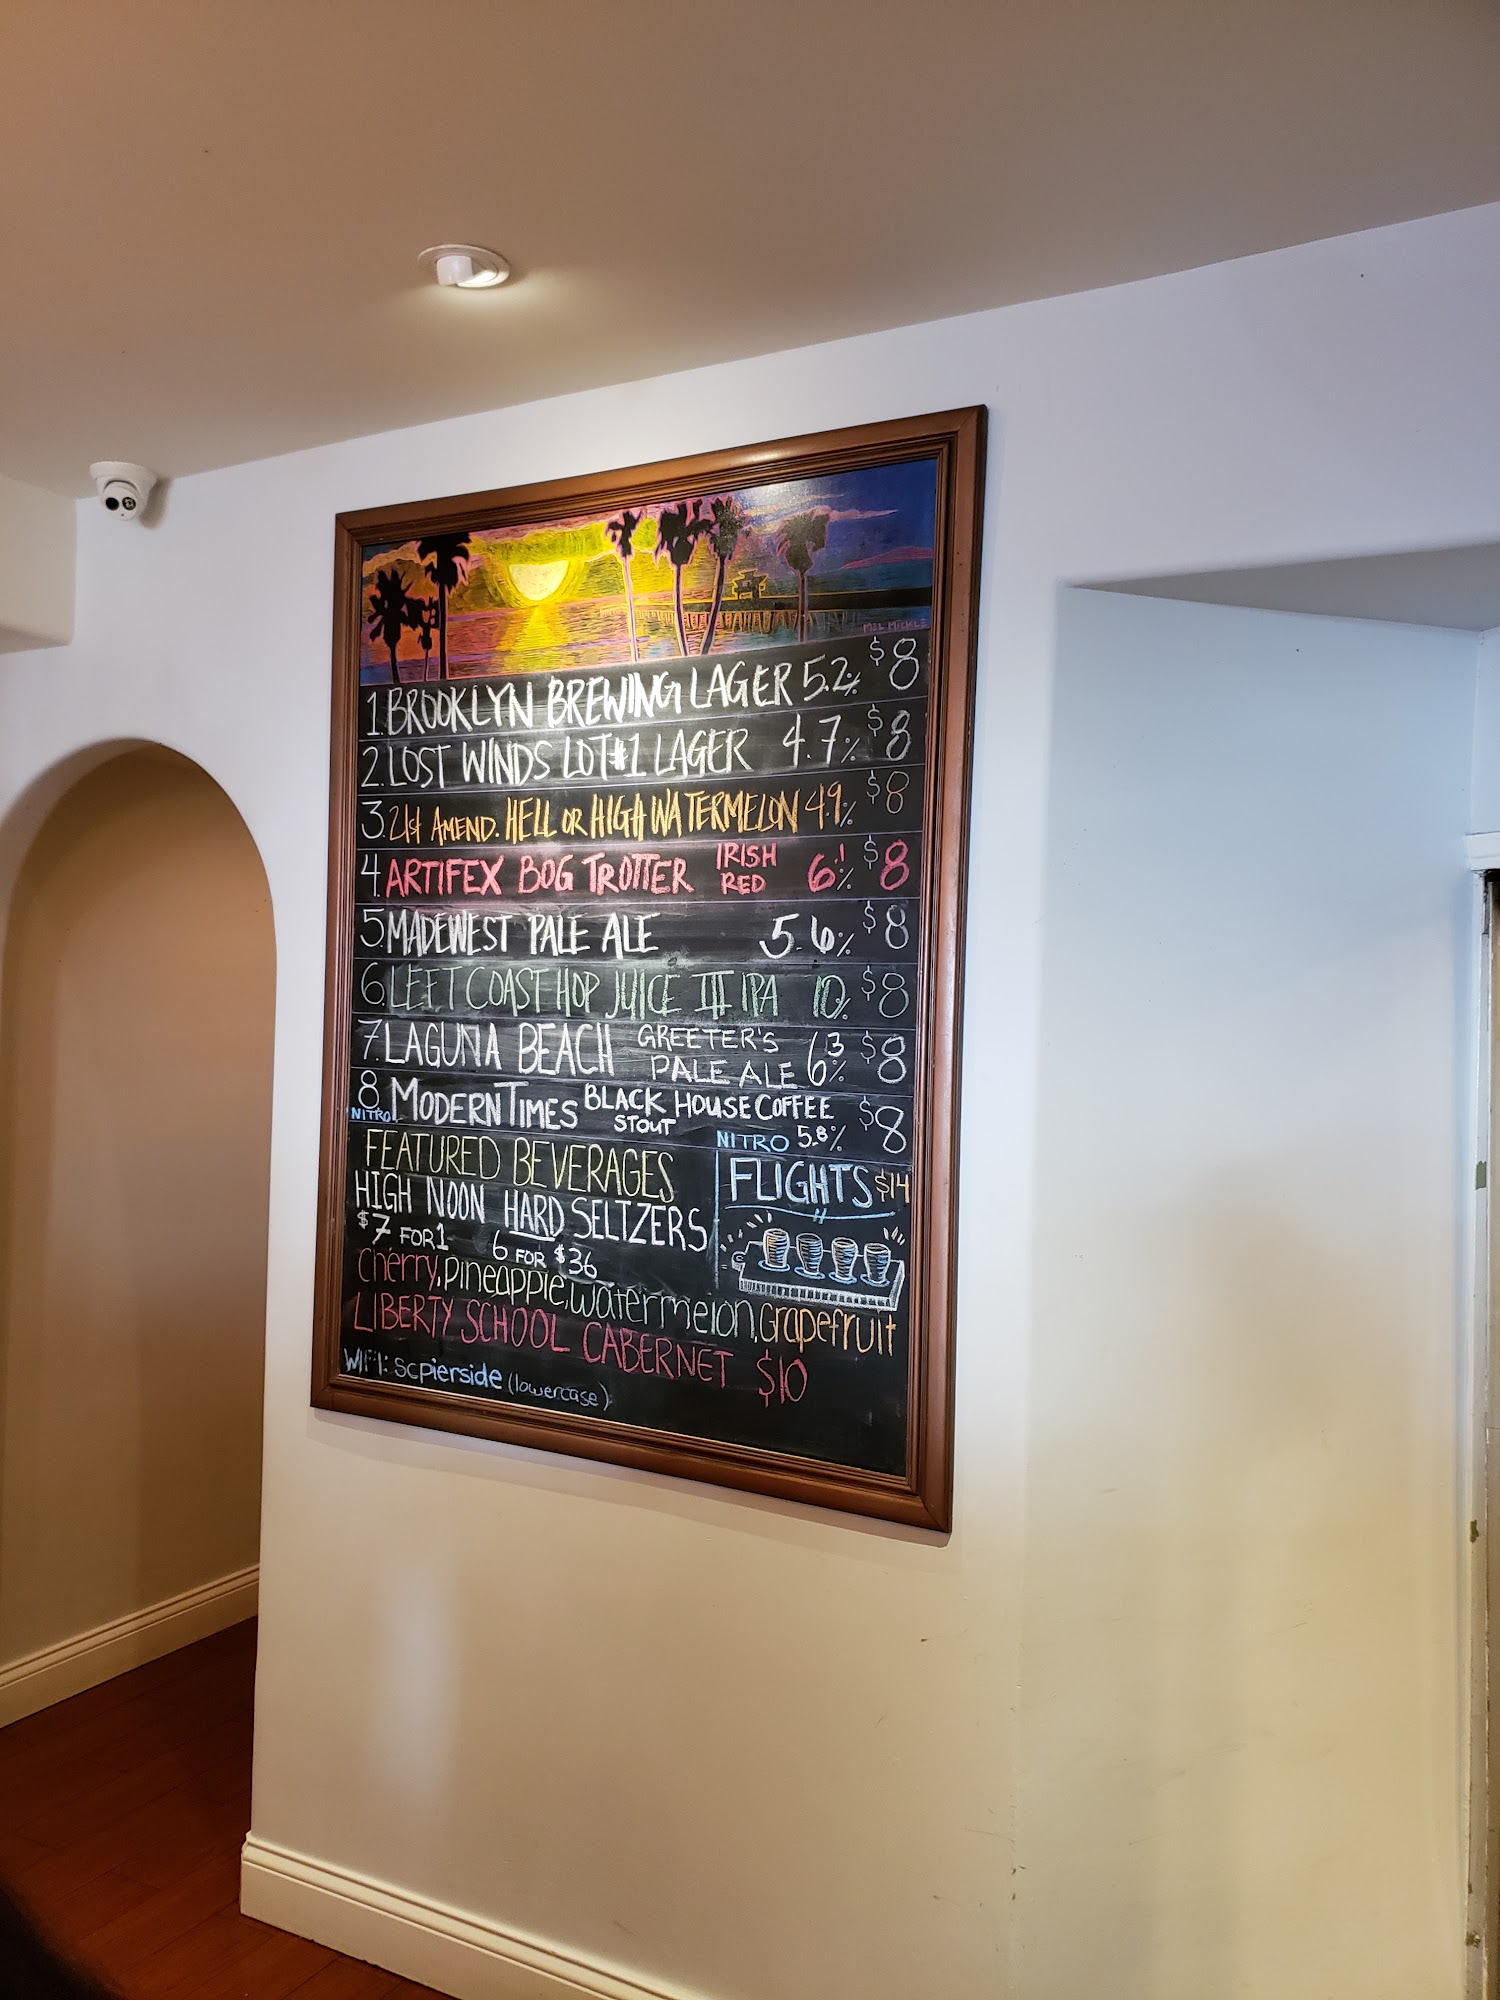 MEL MICKLE
1. BROOKLYN BREWING LAGER 5.2% $8
2. LOST WINDS LOT #1 LAGER 4.7% $8
3. 21st AMEND. HELL OR HIGH WATERMELON 4.9% $8
4. ARTIFEX BOG TROTTER IRISH RED 6.1% $8
5. MADEWEST PALE ALE 5.6% $8
6. LEFT COAST HOP JUICE III IPA 10% $8
7. LAGUNA BEACH GREETER'S PALE ALE 6.3% $8
8 NITRO MODERN TIMES BLACK HOUSE COFFEE STOUT NITRO 5.8% $8
FEATURED BEVERAGES
HIGH NOON HARD SELTZERS
$7 FOR 1 6 FOR $36
FLIGHTS $14
Cherry, pineapple, watermelon, Grapefruit
LIBERTY SCHOOL CABERNET $10
WIFI: scpierside (lowercase)